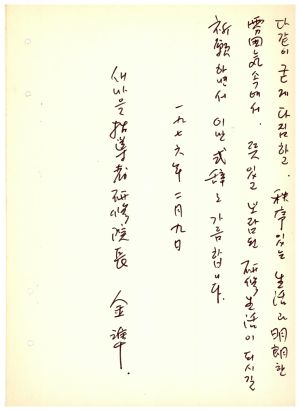 다같이 굳게 다짐하고. 秩序있는 生活과 明朗한
雰囲気 속에서. 뜻있고 보람된 研修生活이 되시길
祈願하면서 이만 式辞를 가름합니다.
一九七六年 二月 九日
새마을指導者研修院長 金準.